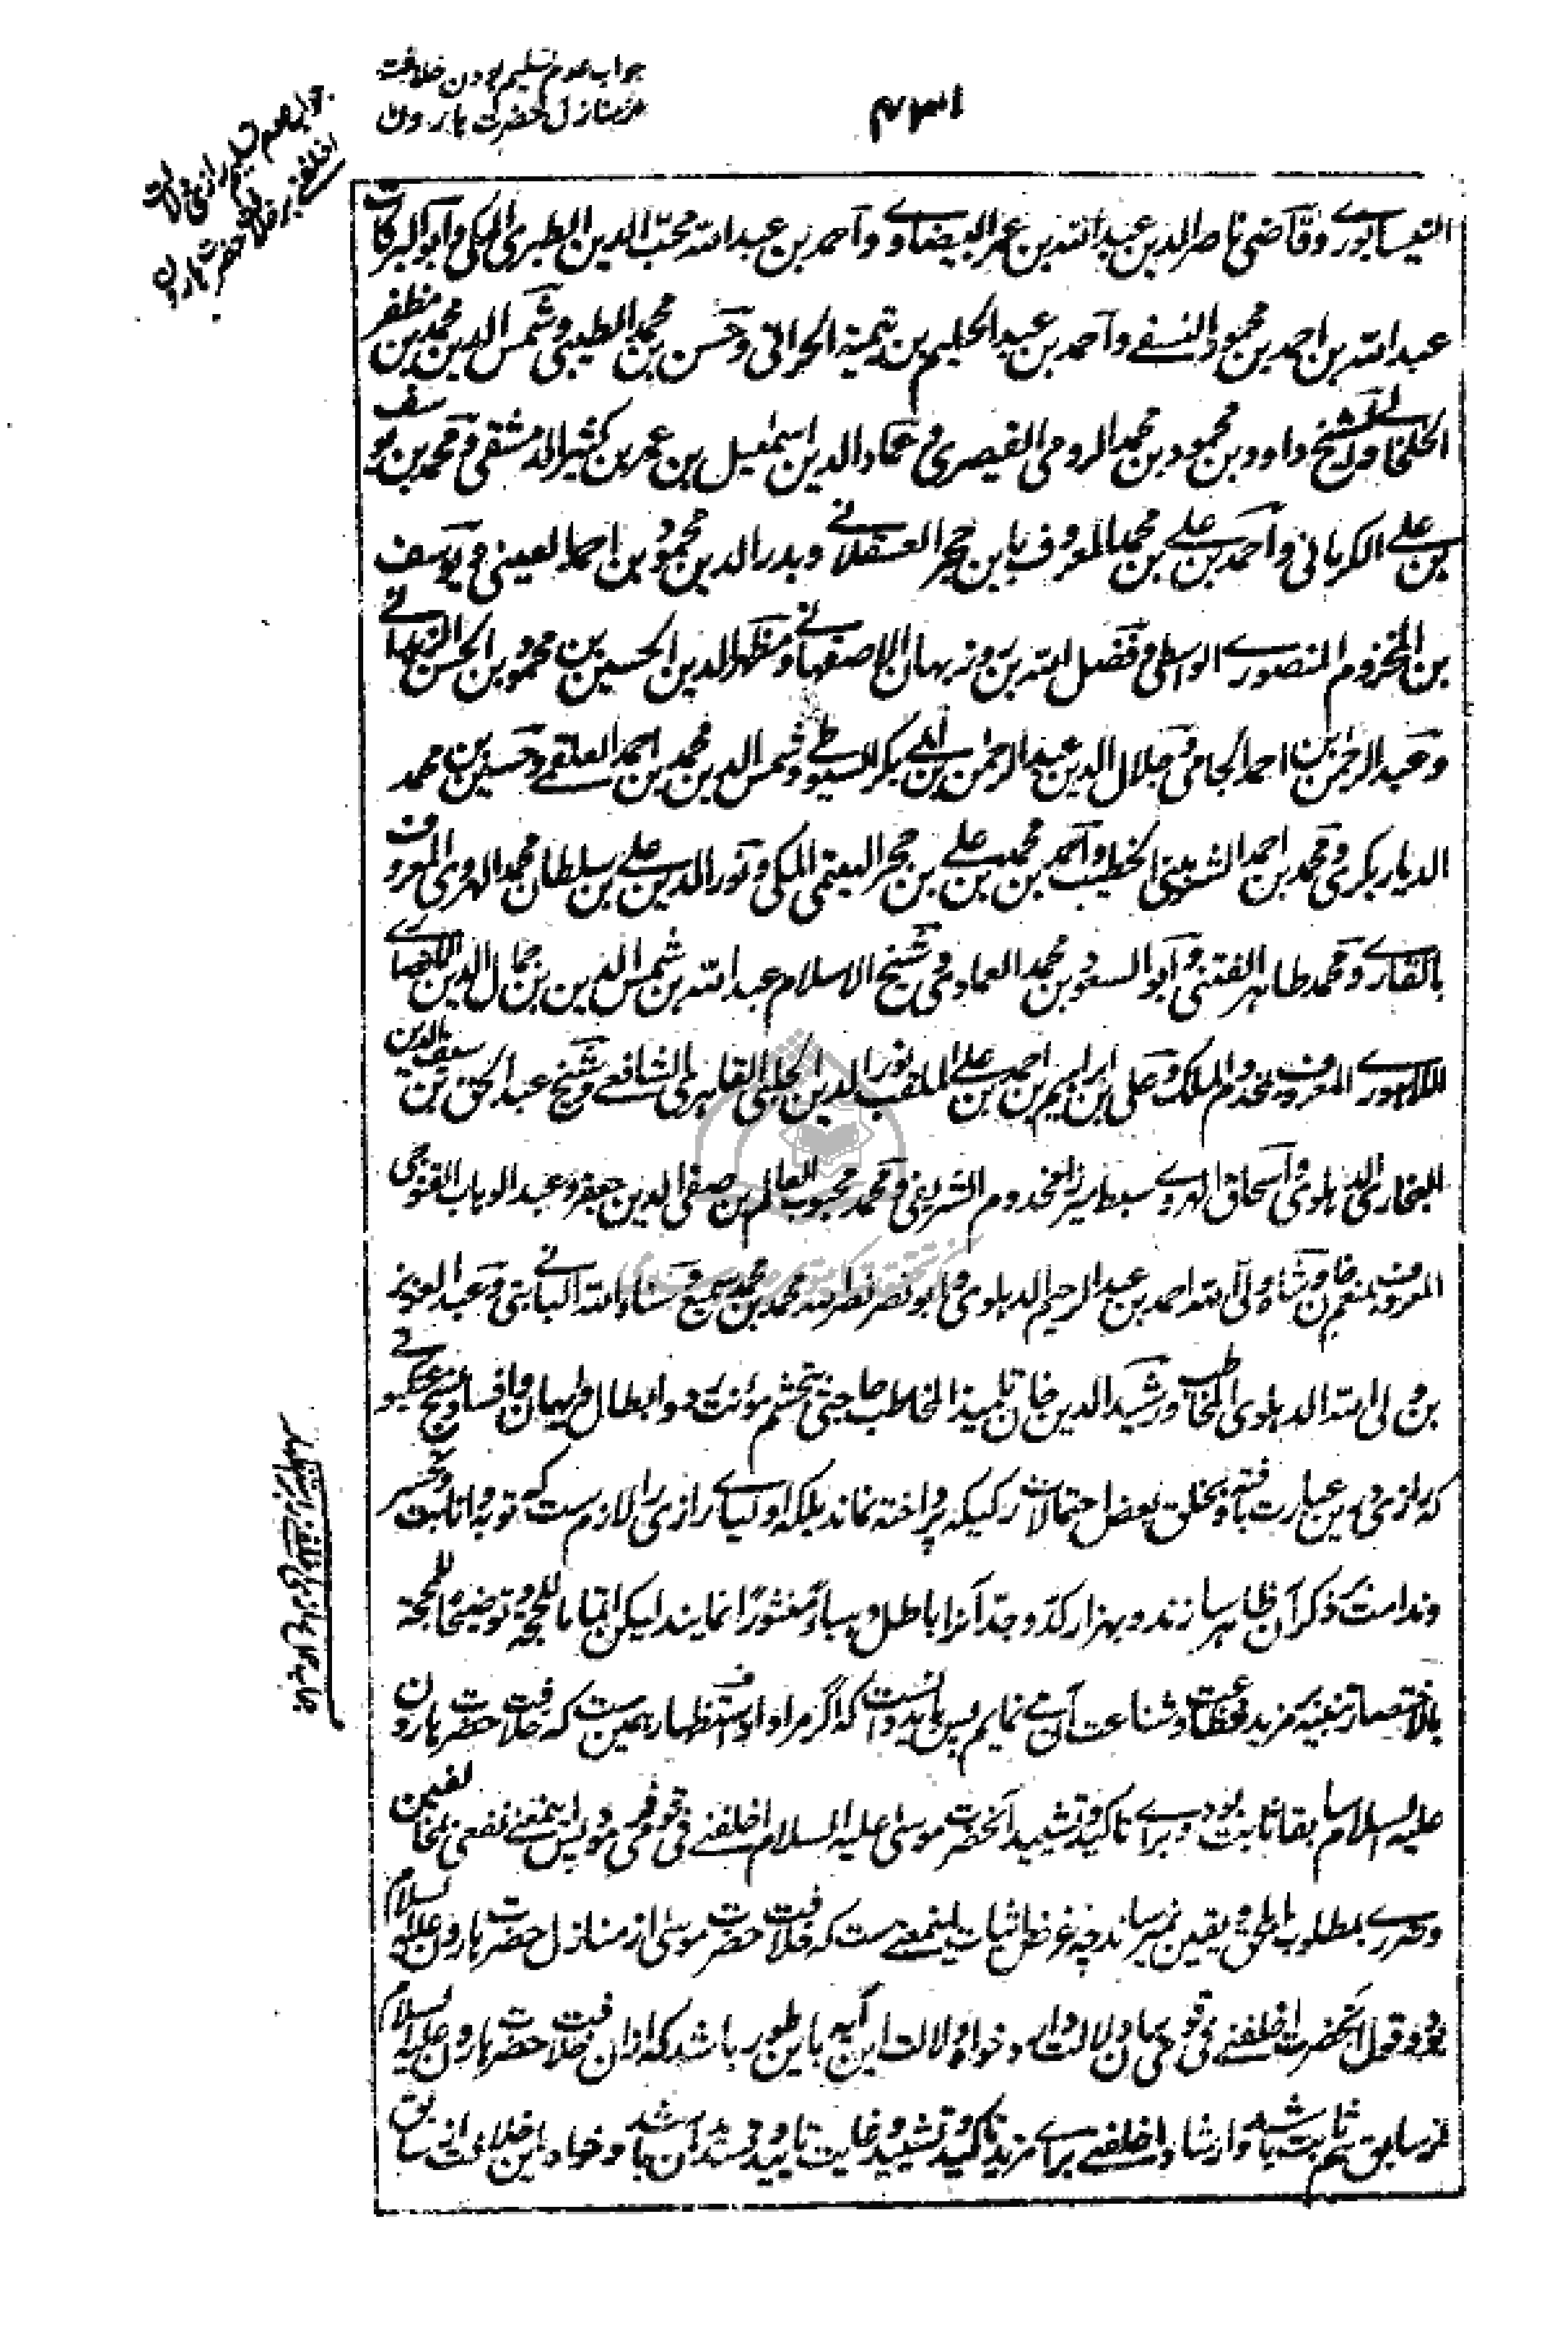 جواب عدم تسلیم بودن خلافت
از منازل حضرت هارون
۴۳۱
النیسابوری و قاضی ناصر الدین عبد الله بن عمر البیضاوی و احمد بن عبد الله محب الدین الطبری المکی و ابو البرکات
عبد الله بن احمد بن محمود النسفی و احمد بن عبد الحلیم بن تیمیة الحرانی و حسن بن محمد الطیبی و شمس الدین محمد بن مظفر
الخلخالی و الشیخ داوود بن محمود بن محمد الرومی القیصری و عماد الدین اسمعیل بن عمر بن کثیر الدمشقی و محمد بن یوسف
بن علی الکرمانی و احمد بن علی بن محمد المعروف بابن حجر العسقلانی و بدر الدین محمود بن احمد العینی و یوسف
بن المخزوم المنصوری الواسطی و فضل الله بن روزبهان الاصفهانی و مظهر الدین الحسین بن محمود بن الحسن الزیدانی
و عبد الرحمن بن احمد الجامی و جلال الدین عبد الرحمن بن ابی بکر السیوطی و شمس الدین محمد بن احمد العلقمی و حسین بن محمد
الدیاربکری و محمد بن احمد الشربینی الخطیب و احمد بن محمد بن علی بن حجر الهیتمی المکی و نور الدین علی بن سلطان محمد الهروی المعروف
بالقاری و محمد طاهر الفتنی و ابو السعود بن محمد العمادی و شیخ الاسلام عبد الله بن شمس الدین بن جمال الدین الانصاری
اللاهوری المعروف بمخدوم الملک و علی بن ابراهیم بن احمد بن علی الملقب نور الدین الحلبی القاهری الشافعی و شیخ عبد الحق بن سیف الدین
البخاری الدهلوی و اسحاق الهروی سبط میرزا مخدوم الشریفی و محمد محبوب العالم بن صفی الدین جعفر و عبد الوهاب القنوجی
المعروف بمنعم خان و شاه ولی الله احمد بن عبد الرحیم الدهلوی و ابو نصر نصر الله محمد بن محمد سمیع و ثناء الله البانی بتی و عبد العزیز
بن ولی الله الدهلوی المخاطب و رشید الدین خان تلمیذ المخاطب حاجتی بتجشم مؤنت رد و ابطال و توهین و افساد نسج عنکبوتی
که رازی درین عبارت بافته و بخلق بعض احتمالات رکیکه پرداخته نماند بلکه اولیای رازی را لازم ست که توبه و انابت و تحسر
و ندامت ذکر آن ظاهر سازند و بهزار کد و جد آنرا باطل و هباء منثورا نمایند لیکن اتماما للحجة و توضیحا للمحجة
بالاختصار تنبیه بر مزید فظاعت و شناعت آن می نمایم پس باید دانست که اگر مراد او از استظهار همین ست که خلافت حضرت هارون
علیه السلام سابقا ثابت بود و برای تاکید و تشیید آنحضرت موسی علیه السلام اخلفنی فی قومی فرمود پس اینمعنی نفعی بمخالفین
و ضرری بمطلوب اهل حق و یقین نمیرساند چه غرض اثبات اینمعنی ست که خلافت حضرت موسی از منازل حضرت هارون علیه السلام
بود و قول آنحضرت اخلفنی فی قومی بر آن دلالت دارد خواه دلالت این آیه باین طور باشد که ازان خلافت حضرت هارون علیه السلام
از سابق هم ثابت باشد و ارشاد اخلفنی برای مزید تاکید و تشیید و غایت تایید و تسدید آن باشد و خواه این خلافت از سابق